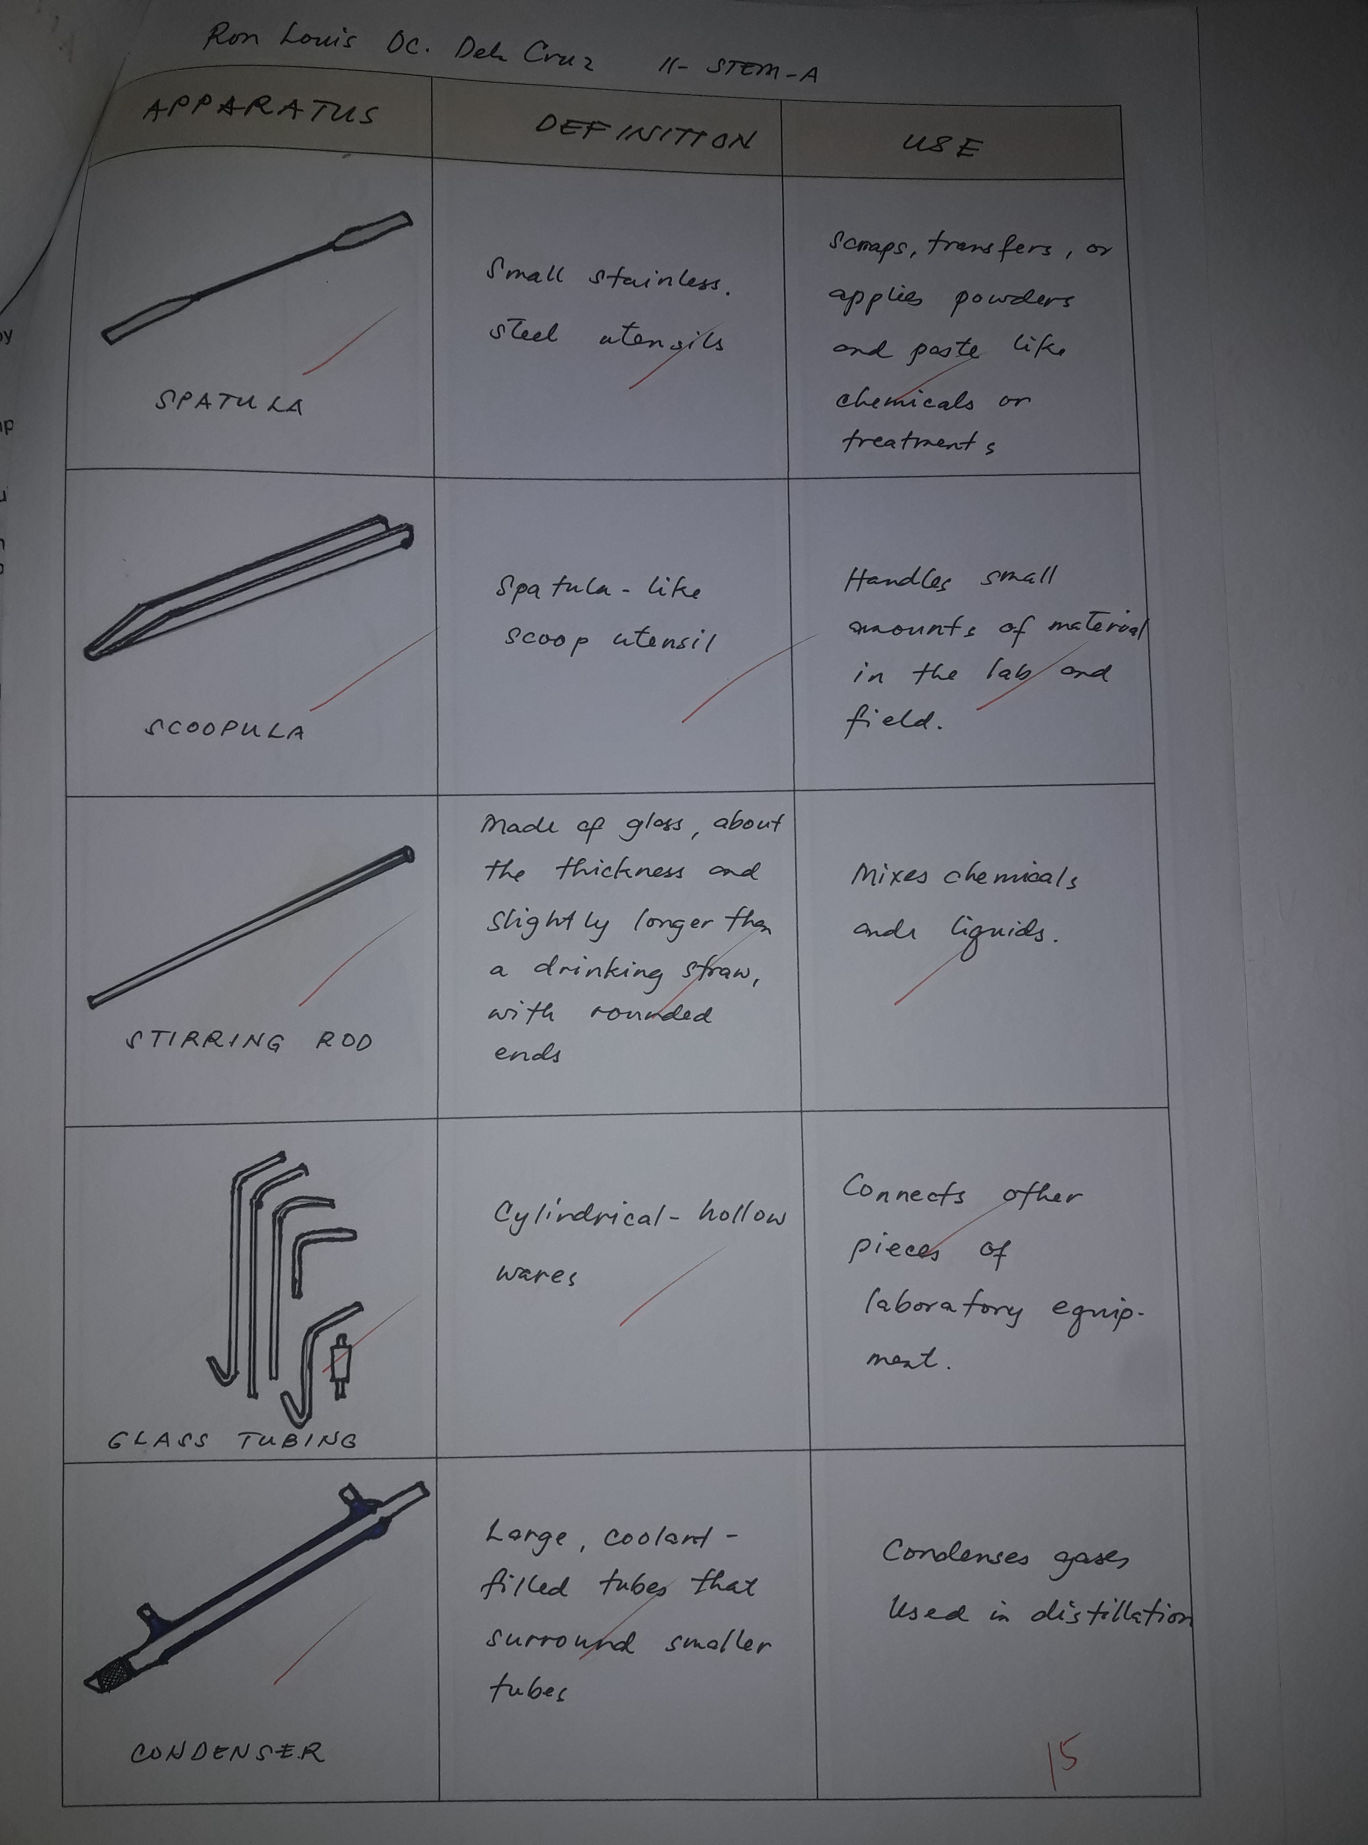 Ron Louis Oc. Dela Cruz 11- STEM-A
APPARATUS
DEFINITION
USE
SPATULA
Small stainless.
steel utensils
Scraps, transfers, or
applies powders
and paste like
chemicals or
treatments
SCOOPULA
Spatula-like
scoop utensil
Handles small
amounts of material
in the lab and
field.
STIRRING ROD
Made of glass, about
the thickness and
slightly longer than
a drinking straw,
with rounded
ends
Mixes chemicals
and liquids.
GLASS TUBING
Cylindrical-hollow
wares
Connects other
pieces of
laboratory equip-
ment.
CONDENSER
Large, coolant-
filled tubes that
surround smaller
tubes
Condenses gases
Used in distillation
15